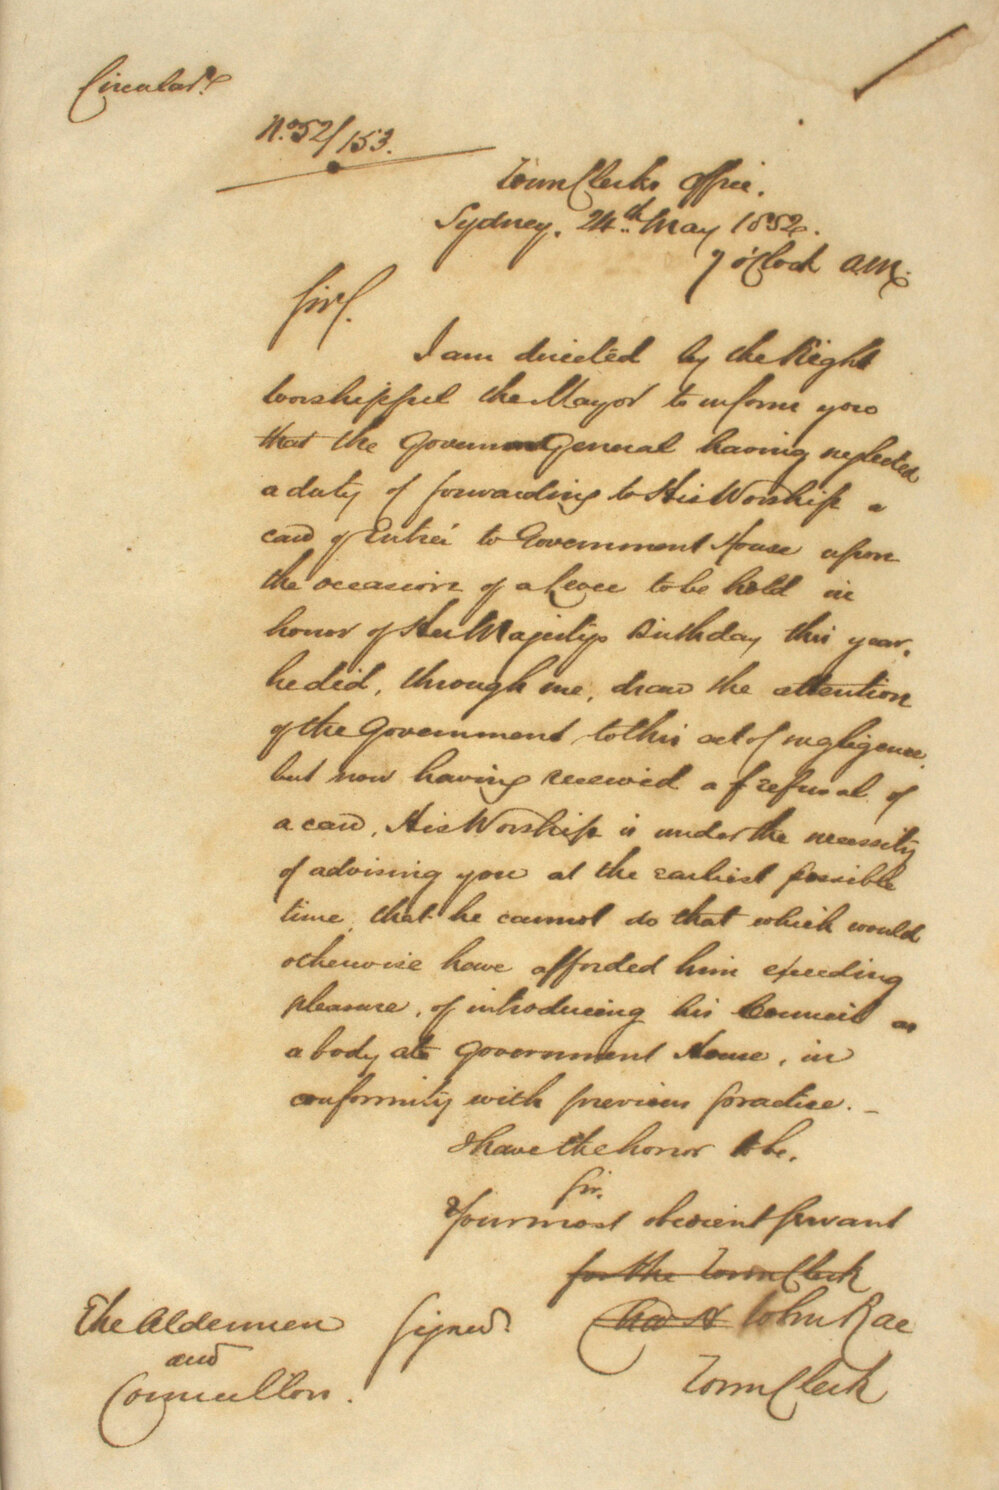 Circular.
No. 52/153.
Town Clerks Office.
Sydney. 24th May 1852.
7 o'Clock AM.
Sir,
I am directed by the Right
Worshipful the Mayor to inform you
that the Governor General having neglected
a duty of forwarding to His Worship a
card of Entreé to Government House upon
the occasion of a Levee to be held in
honor of Her Majesty's Birthday this year,
he did, through me, draw the attention
of the Government to this act of negligence,
but now having received a refusal of
a card, His Worship is under the necessity
of advising you at the earliest possible
time, that he cannot do that which would
otherwise have afforded him exceeding
pleasure, of introducing his Council as
a body at Government House, in
conformity with previous practice. _
I have the honor to be.
Sir.
Your most obedient Servant
for the Town Clerk
Chas H John Rae
The Aldermen Signed.
and
Town Clerk
Councillors.